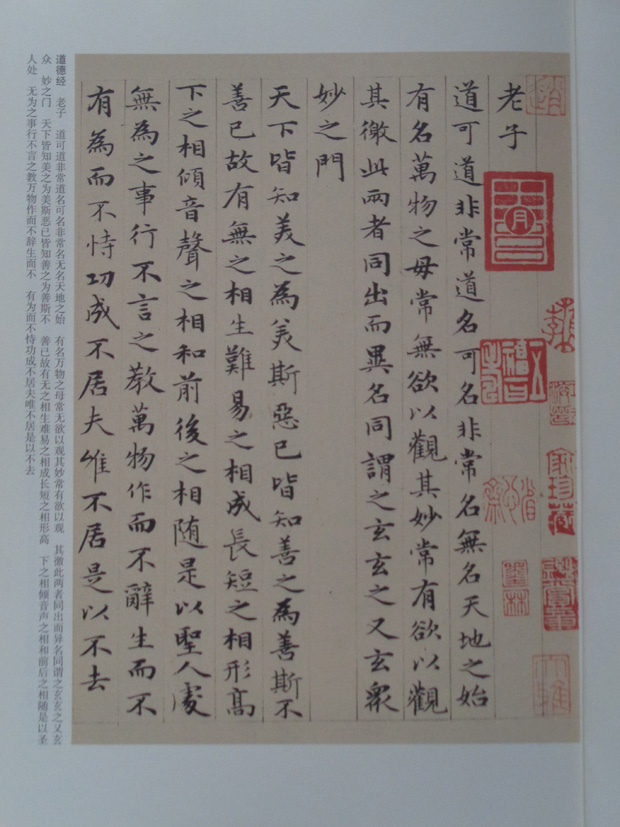 老子
道可道非常道名可名非常名無名天地之始
有名萬物之母常無欲以觀其妙常有欲以觀
其徼此兩者同出而異名同謂之玄玄之又玄眾
妙之門
天下皆知美之為美斯惡已皆知善之為善斯不
善已故有無之相生難易之相成長短之相形高
下之相傾音聲之相和前後之相随是以聖人處
無為之事行不言之教萬物作而不辭生而不
有為而不恃功成不居夫惟不居是以不去
道德经 老子 道可道非常道名可名非常名无名天地之始 有名万物之母常无欲以观其妙常有欲以观 其徼此两者同出而异名同谓之玄玄之又玄
众 妙之门 天下皆知美之为美斯恶已皆知善之为善斯不 善已故有无之相生难易之相成长短之相形高 下之相倾音声之相和前后之相随是以圣
人处 无为之事行不言之教万物作而不辞生而不 有为而不恃功成不居夫唯不居是以不去